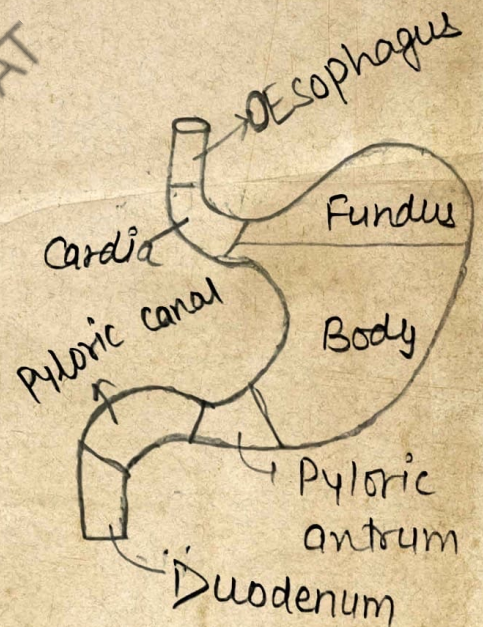 AT
OEsophagus
Fundus
Cardia
Pyloric canal
Body
Pyloric
antrum
Duodenum